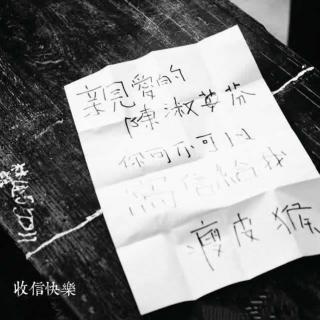 親愛的
陳淑英芬
你可不可以
寫信給我
瘦皮猴
收信快樂